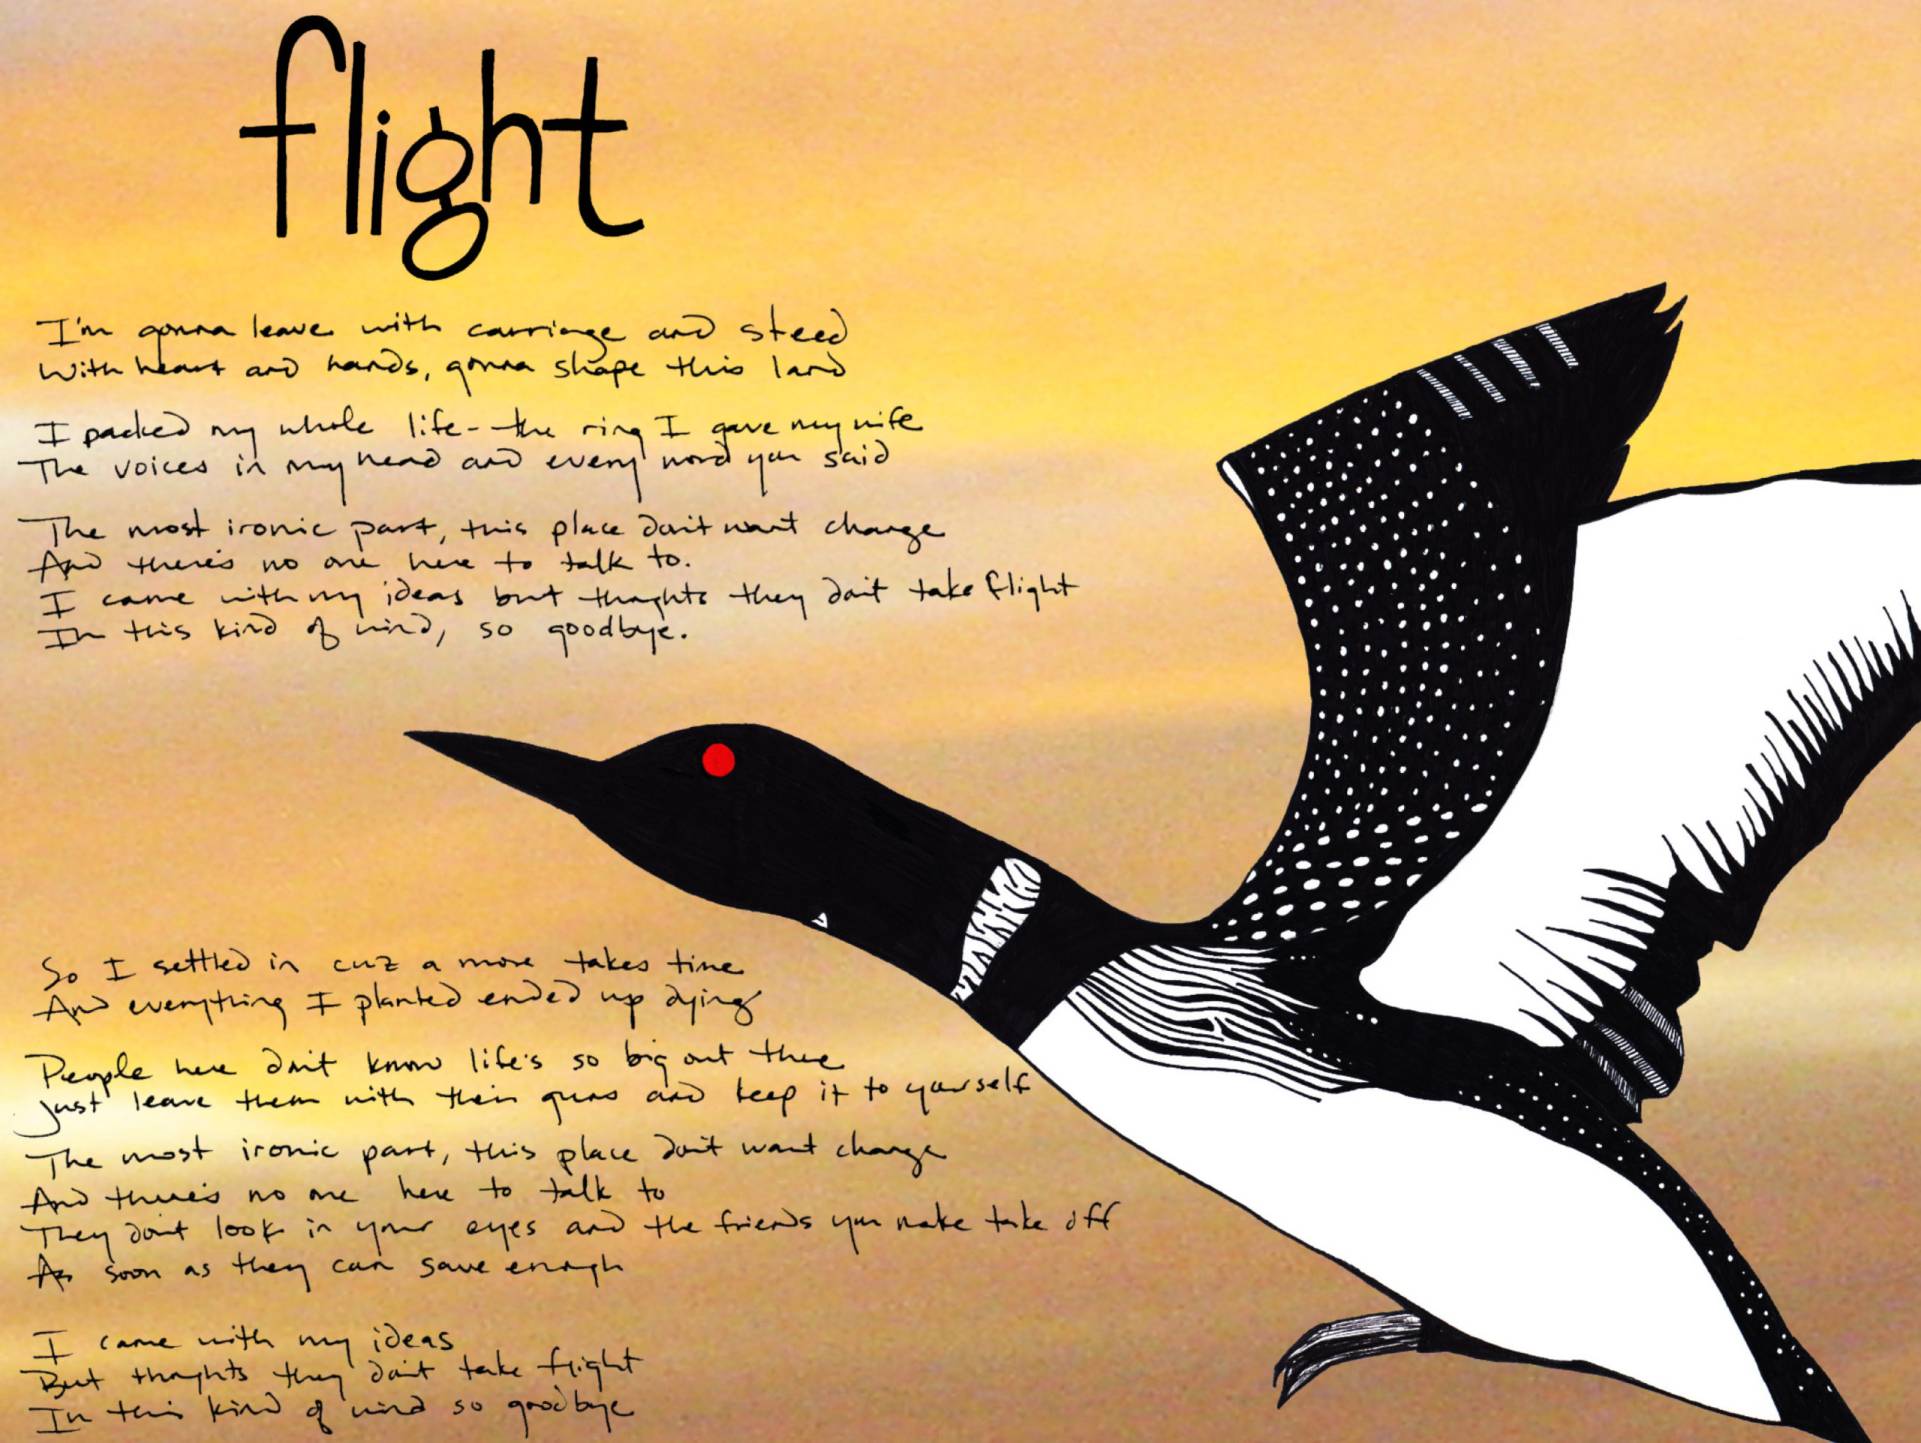 flight
I'm gonna leave with carriage and steed
With heart and hands, gonna shape this land
I packed my whole life - the ring I gave my wife
The voices in my head and every word you said
The most ironic part, this place don't want change
And there's no one here to talk to.
I came with my ideas but thoughts they don't take flight
In this kind of wind, so goodbye.
So I settled in cuz a move takes time
And everything I planted ended up dying
People here don't know life's so big out there
Just leave them with their guns and keep it to yourself
The most ironic part, this place don't want change
And there's no one here to talk to
They don't look in your eyes and the friends you make take off
As soon as they can save enough
I came with my ideas
But thoughts they don't take flight
In this kind of wind so goodbye